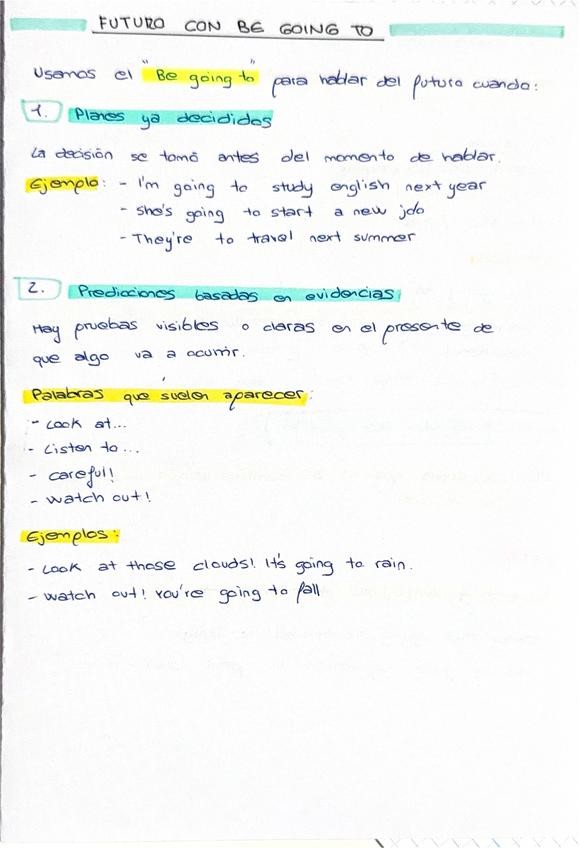 FUTURO CON BE GOING TO
Usamos el "Be going to" para hablar del futuro cuando:
1. Planes ya decididos
La decisión se tomó antes del momento de hablar.
Ejemplo: - I'm going to study english next year
- She's going to start a new job
- They're to travel next summer
2. Predicciones basadas en evidencias
Hay pruebas visibles o claras en el presente de
que algo va a ocurrir.
Palabras que suelen aparecer:
- Look at...
- Listen to...
- careful!
- watch out!
Ejemplos:
- Look at those clouds! It's going to rain.
- watch out! You're going to fall